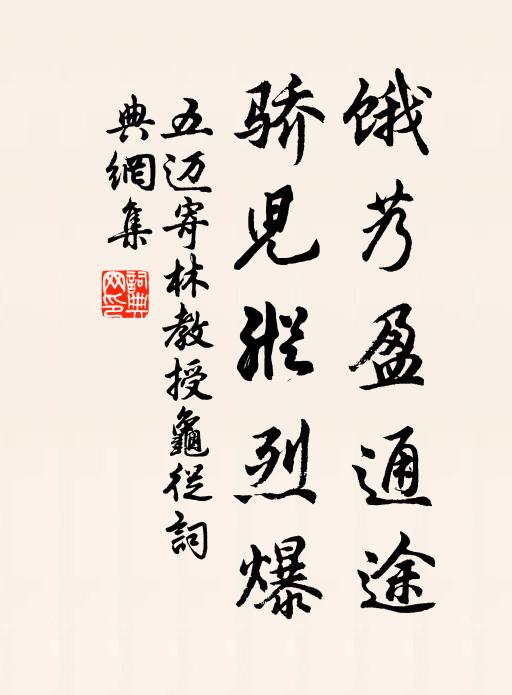 饿盈通途
骄兒縱烈爆
五迈寄林教授龜從詞
典網集
詞典
网印